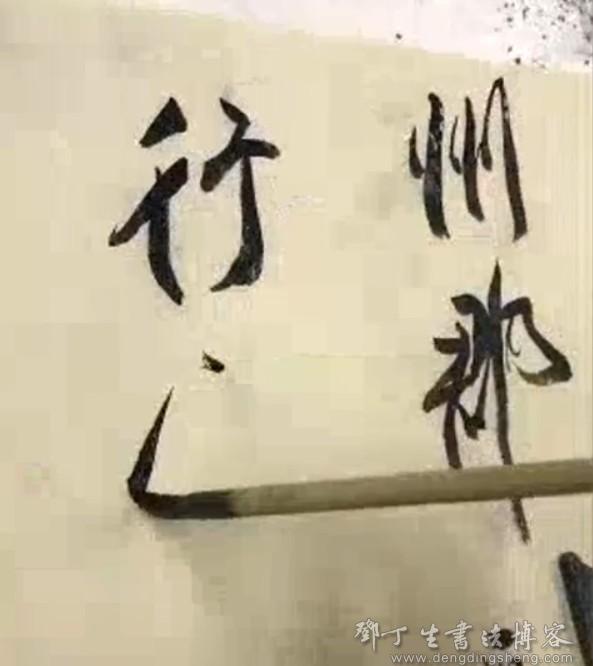 州
行
鄧丁生書法博客
www.dengdingsheng.com